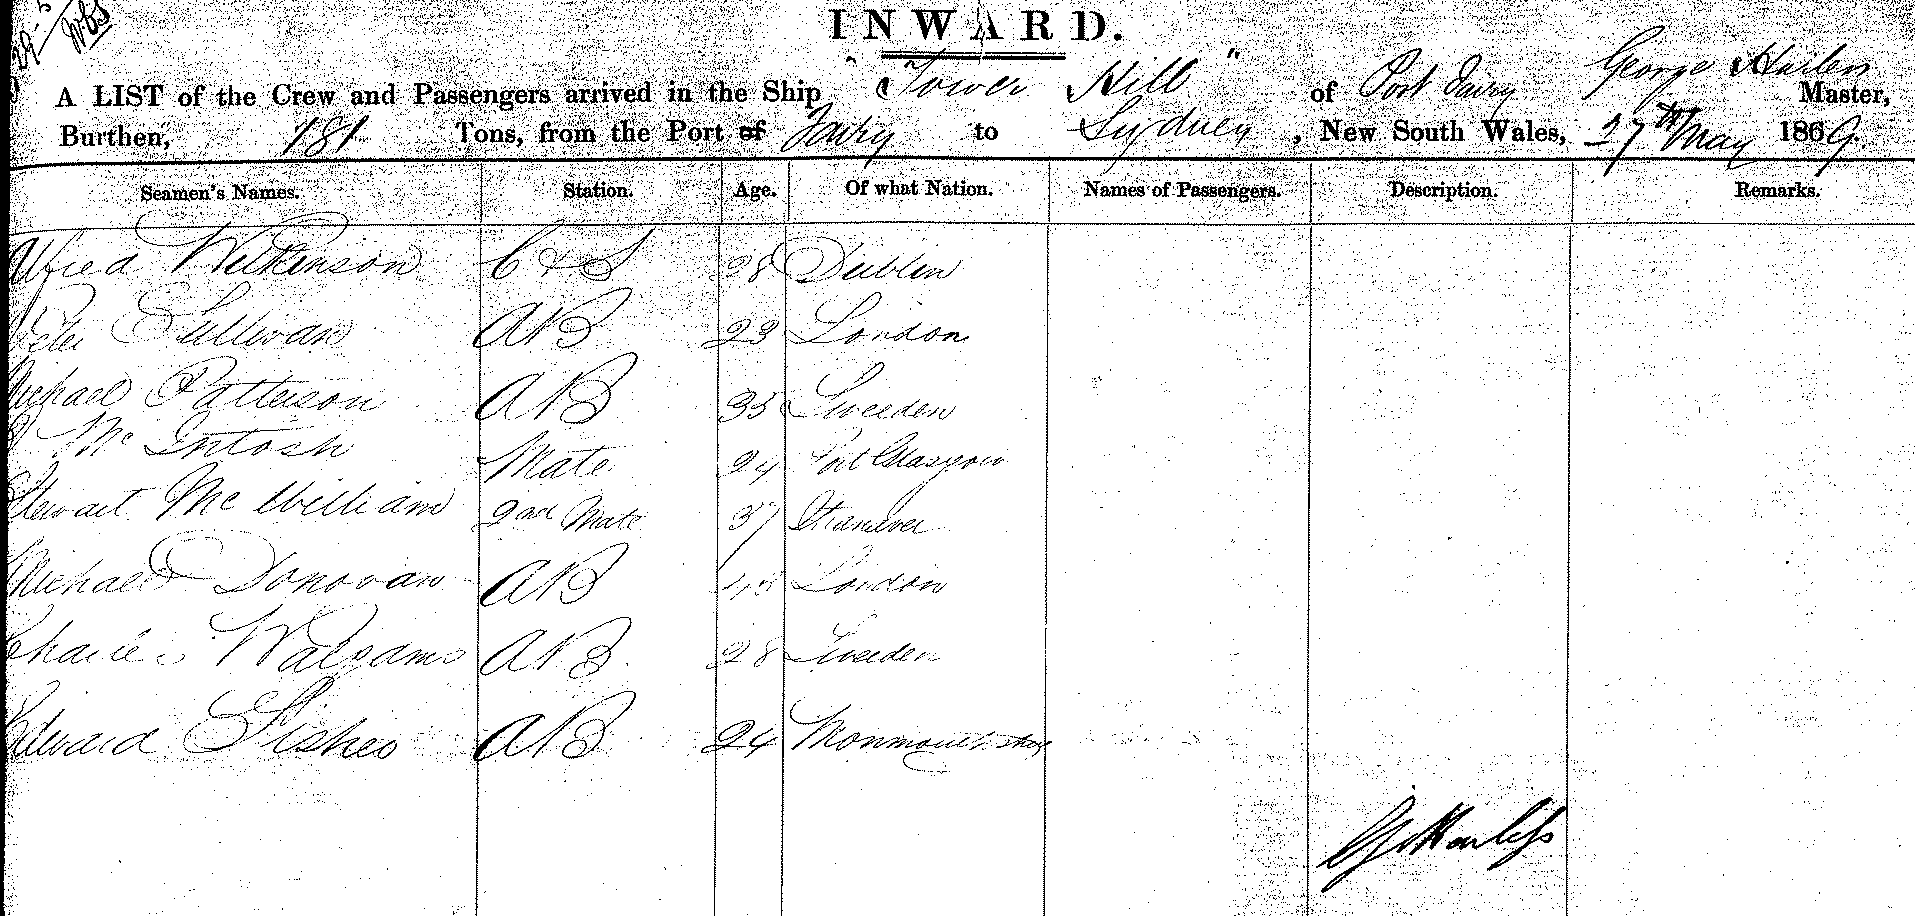 INWARD.
George
A LIST of the Crew and Passengers arrived in the Ship "Tower Hill" of Port Fairy Master,
Burthen, 181 Tons, from the Port of Fairy to Sydney, New South Wales, 27th May 1869.
Seamen's Names. Station. Age. Of what Nation. Names of Passengers. Description. Remarks.
Alfred Wilkinson C & S 28 Dublin
Peter Sullivan AB 23 London
Michael Patterson AB 35 Sweeden
Mc Intosh Mate 24 Port Glasgow
Stewart Mc William 2nd Mate 37 Stranraer
Michael Donovan AB 48 London
Charles AB 28 Sweeden
Edward Fisher AB 24 Monmouthshire